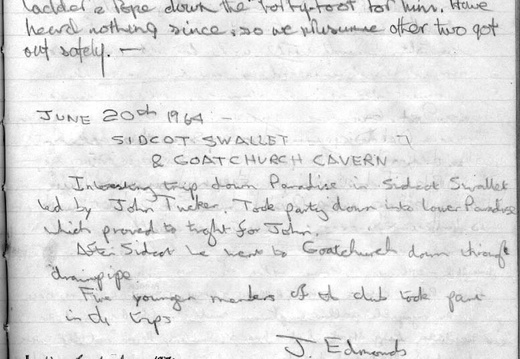 ladder & rope down the forty-foot for him. Have
heard nothing since, so we presume other two got
out safely. —
JUNE 20th 1964 –
SIDCOT SWALLET
& GOATCHURCH CAVERN
Interesting trip down Paradise in Sidcot Swallet
led by John Tucker. Took party down into lower Paradise
which proved to tight for John.
After Sidcot we went to Goatchurch down through
drainpipe.
Five younger members of the club took part
in the trips
J. Edmonds